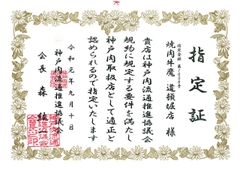 指定証
焼肉牛魔 道頓堀店 様
貴店は神戸肉流通推進協議会
規約に規定する要件を満たし
神戸肉取扱店として適正と
認められるので指定いたします
令和元年九月十日
神戸肉流通推進協議会
会長 森